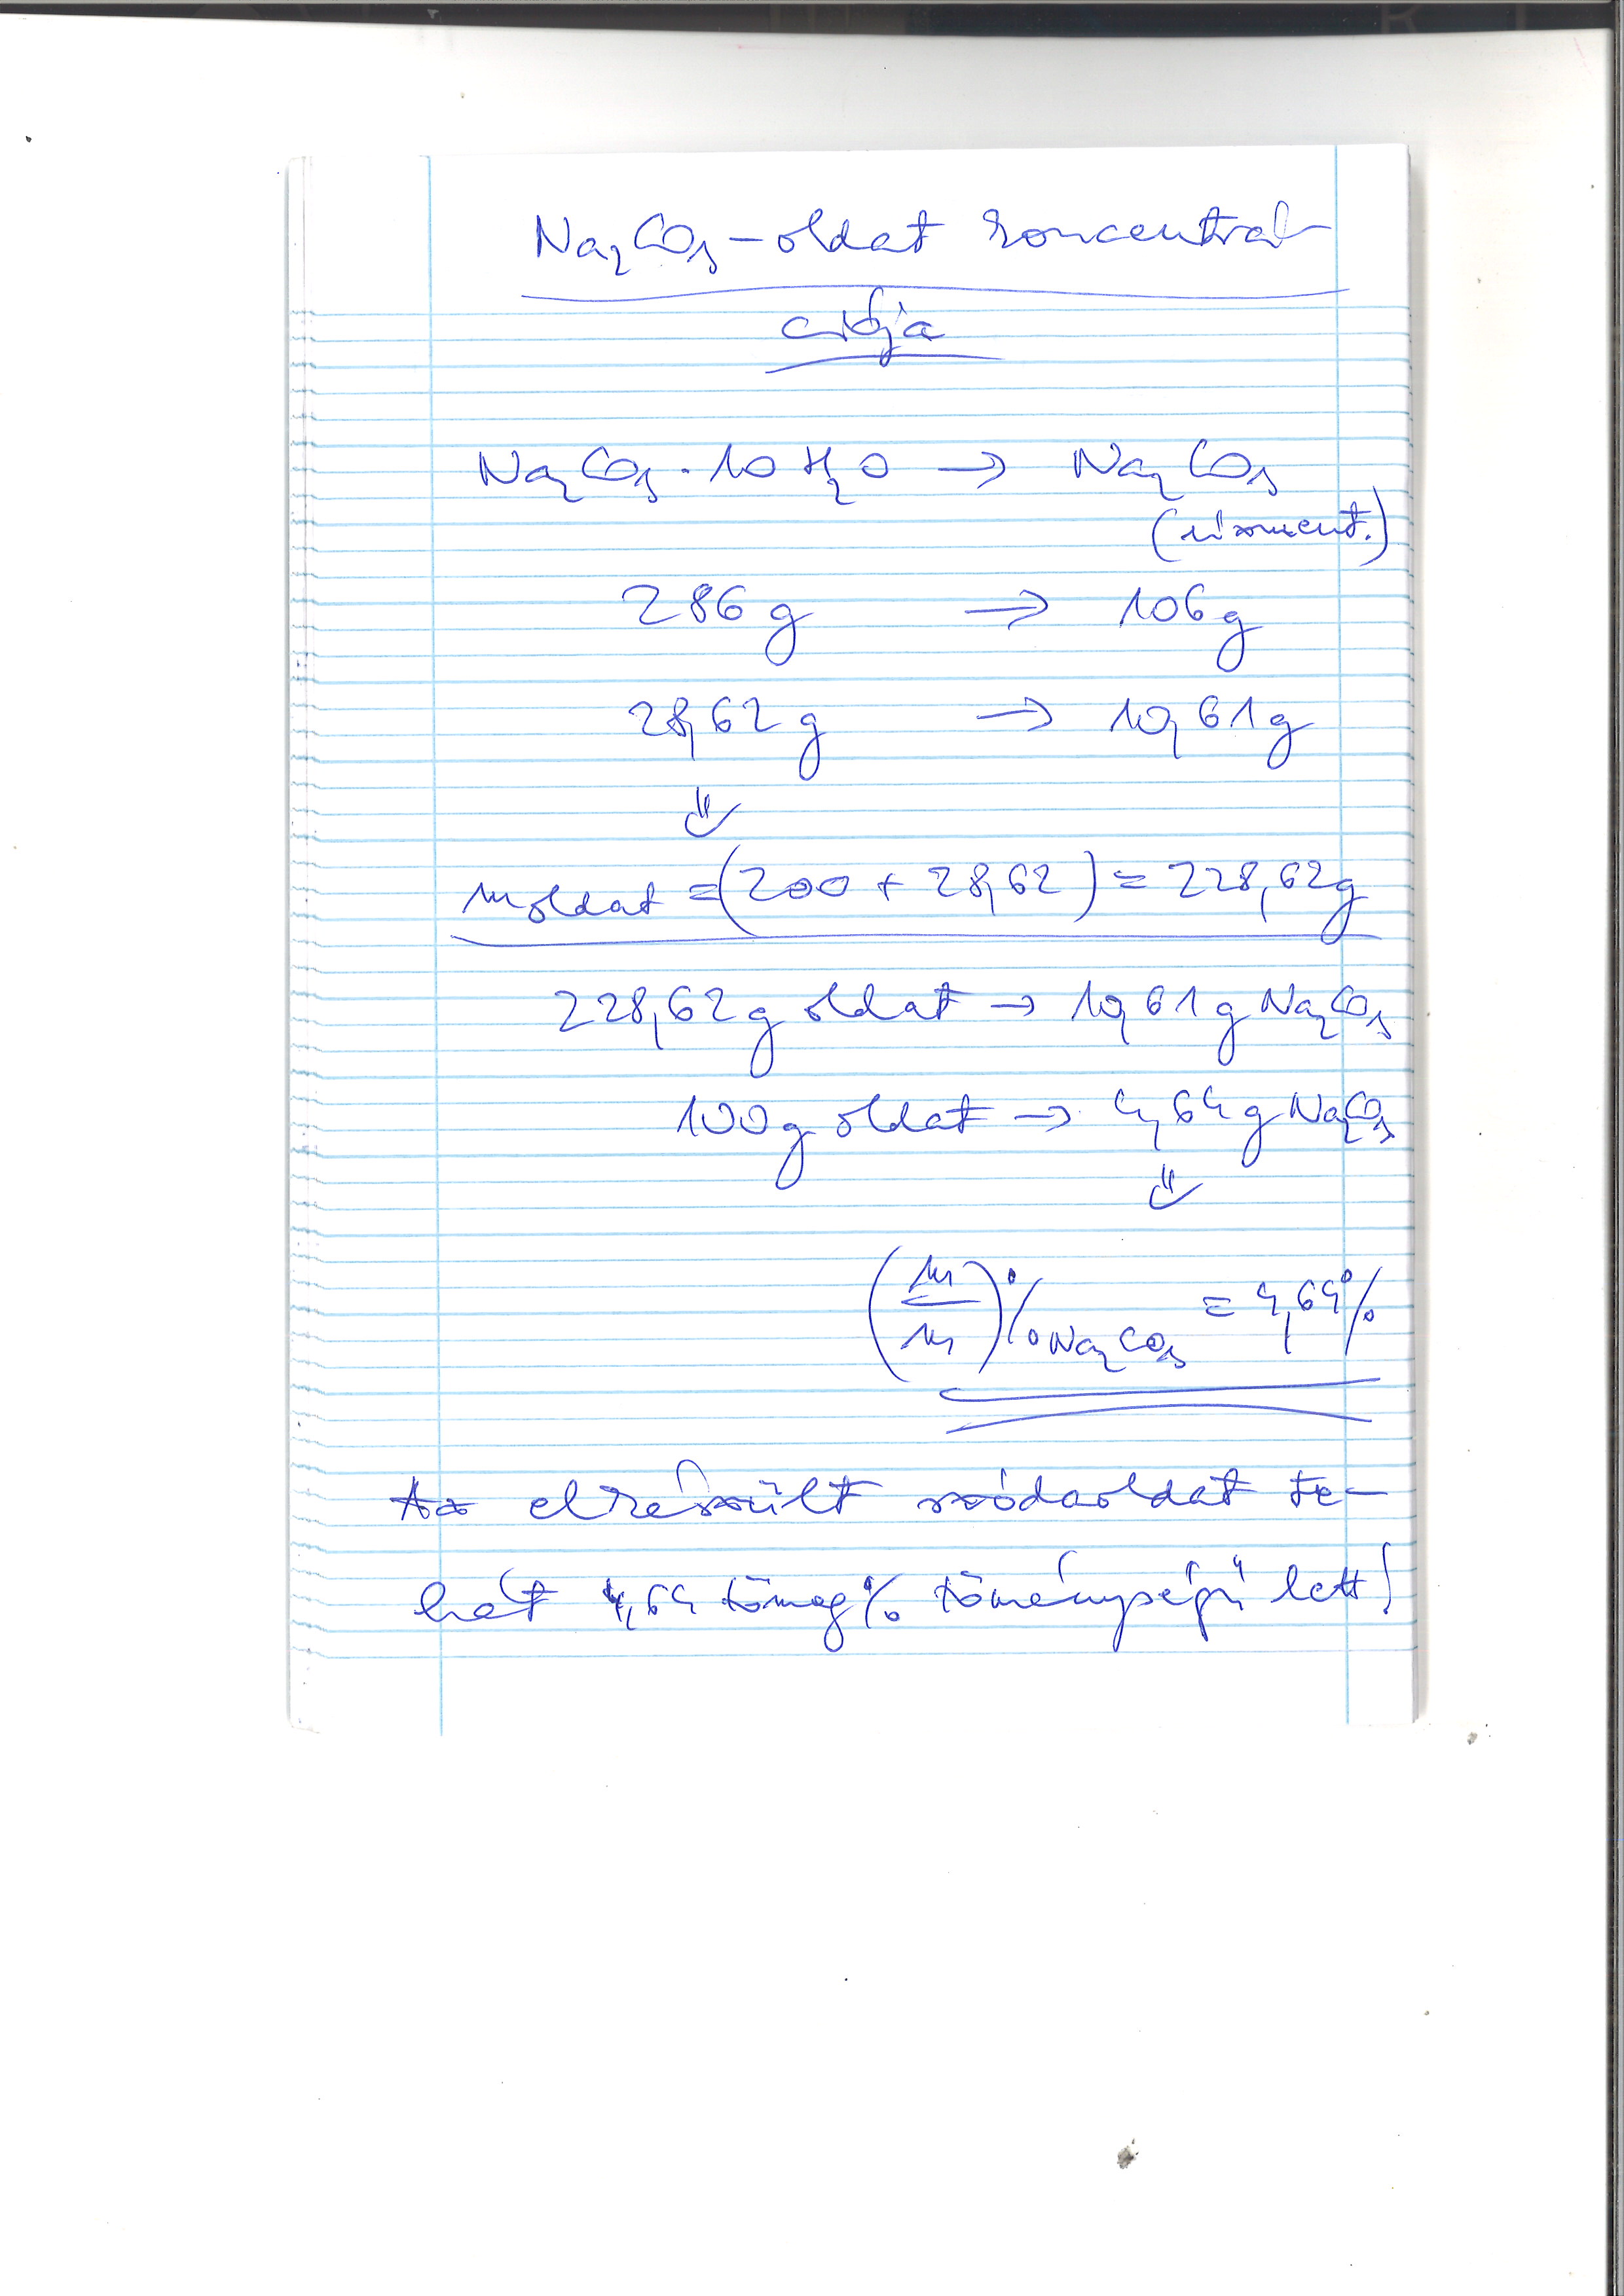 Na₂CO₃-oldat koncentrá-
ciója
Na₂CO₃ · 10 H₂O → Na₂CO₃
(vízment.)
286 g → 106 g
28,62 g → 10,61 g
⇓
moldat = (200 + 28,62) = 228,62 g
228,62 g oldat → 10,61 g Na₂CO₃
100 g oldat → 4,64 g Na₂CO₃
⇓
(m/m)% Na₂CO₃ = 4,64%
Az elkészült szódaoldat te-
hát 4,64 tömeg% töménységű lett!